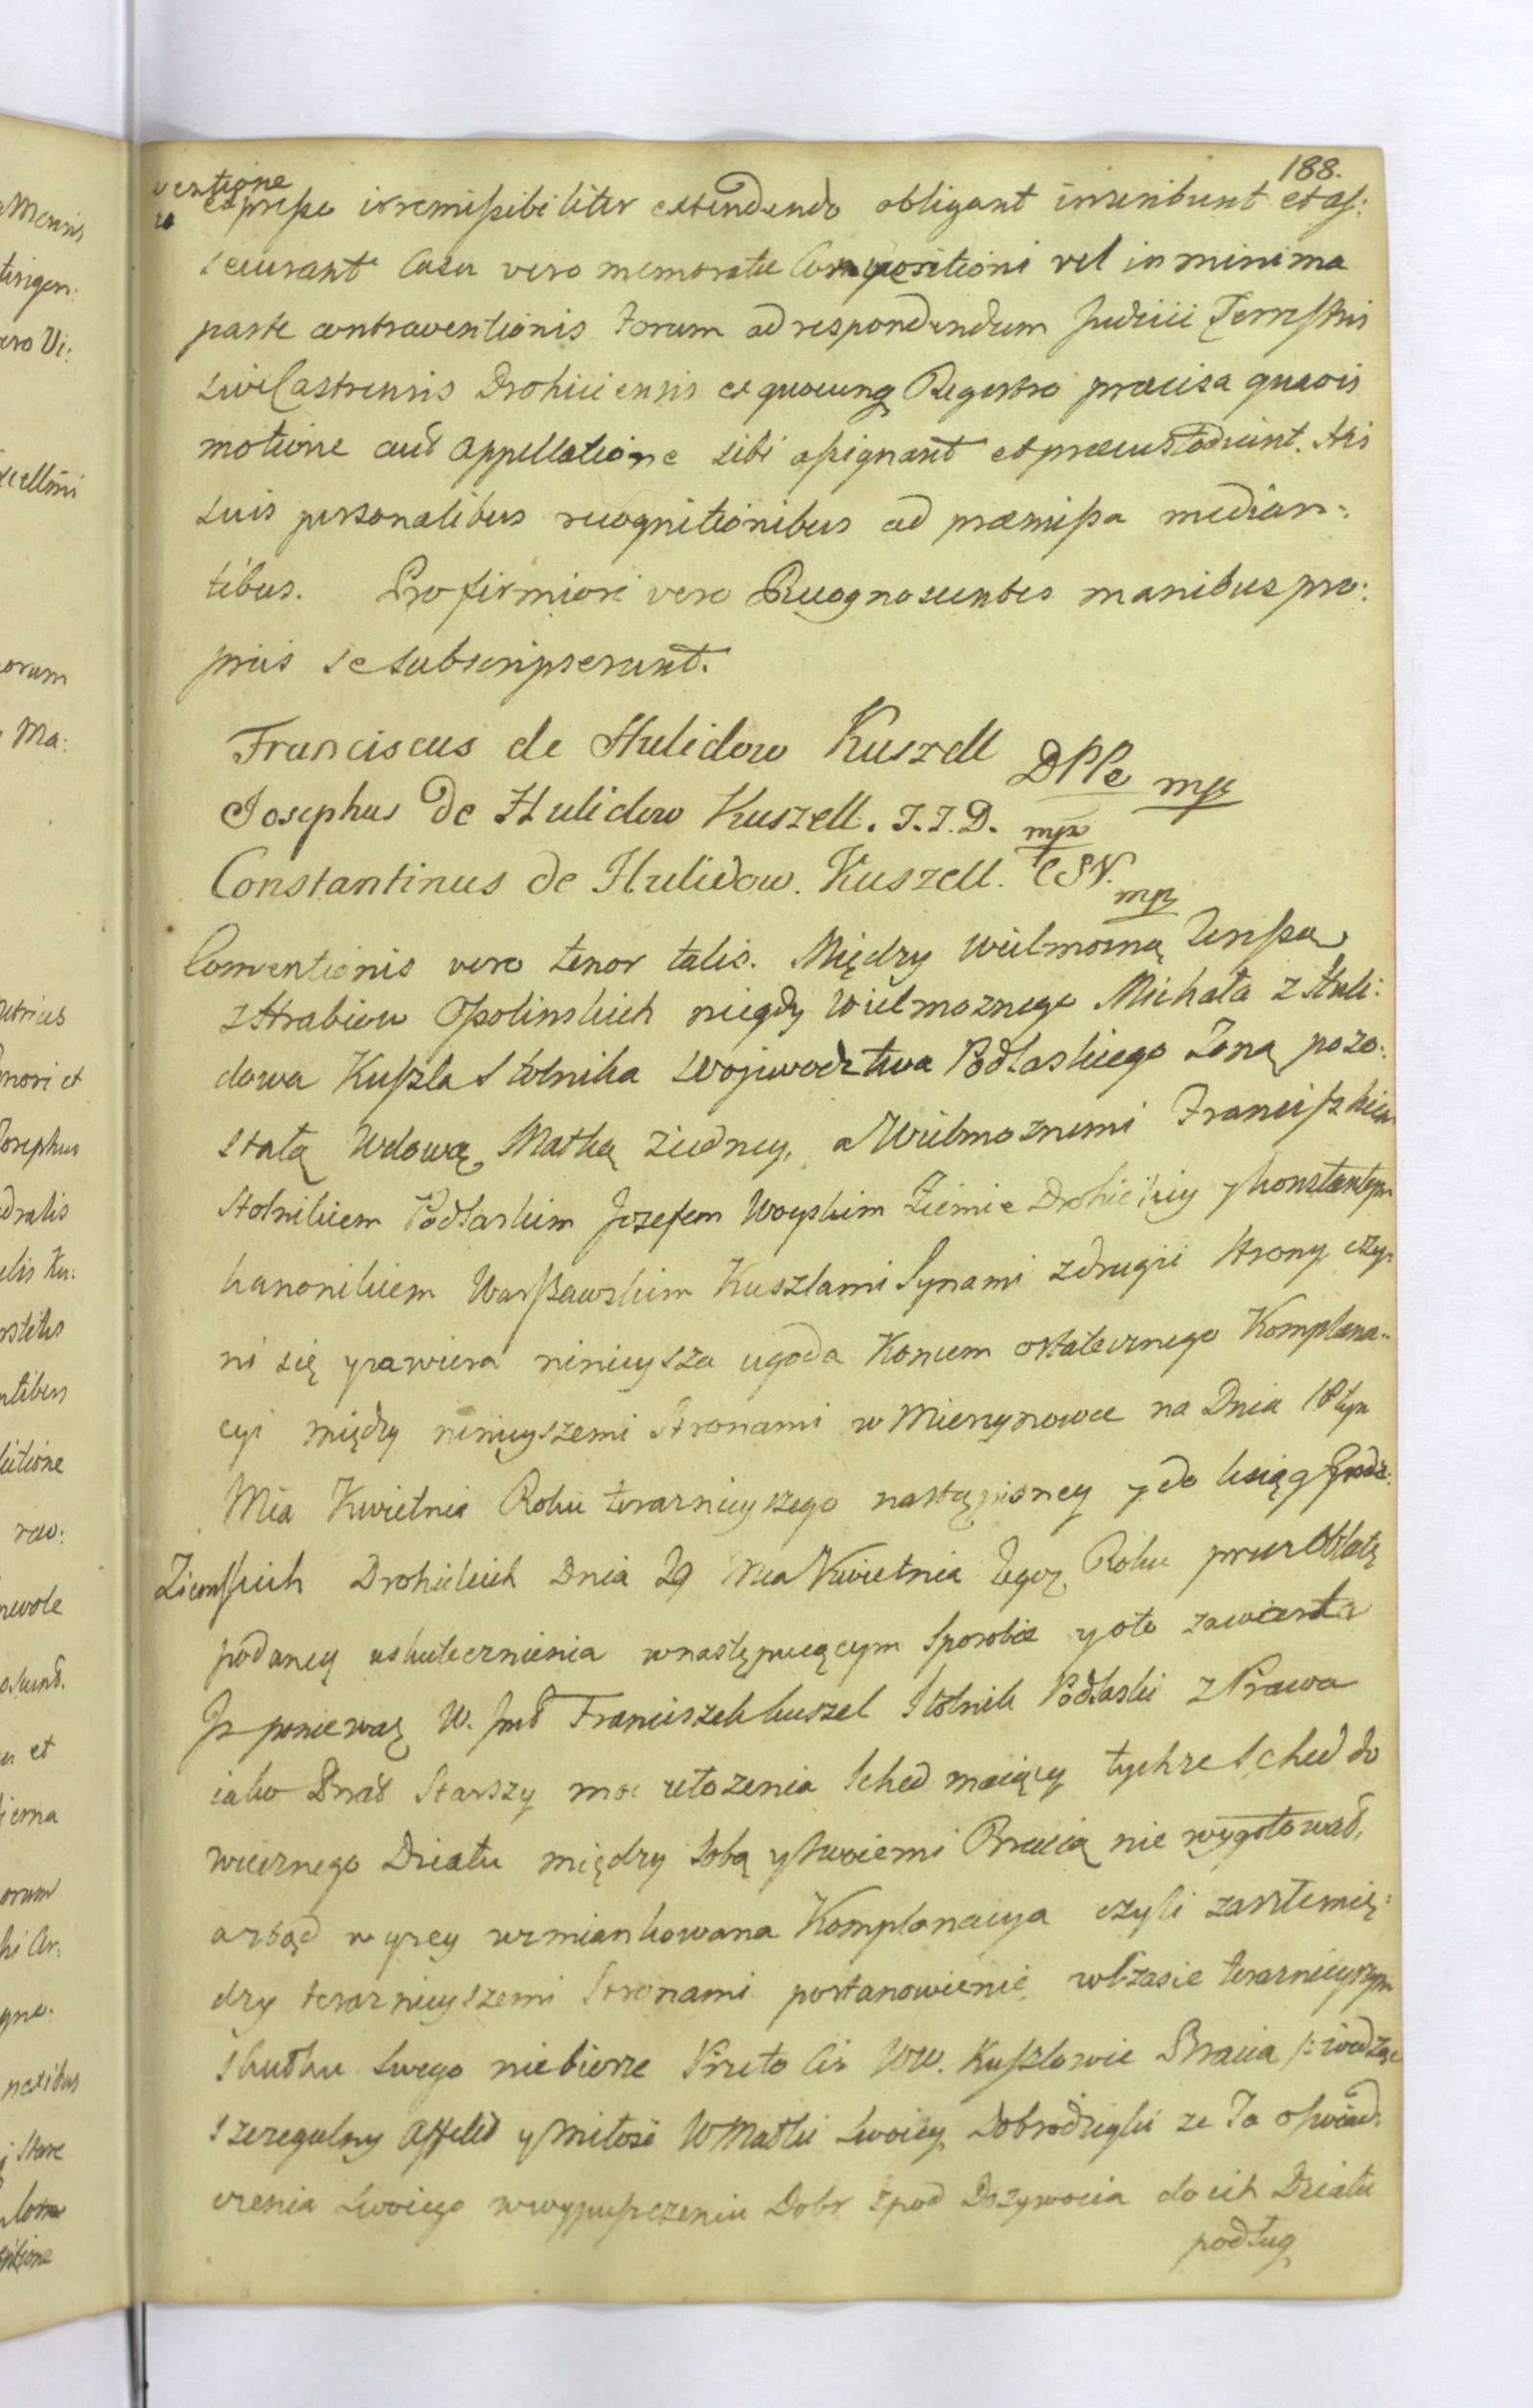 188.
ventione
expresse irremissibiliter extendendo obligant inscribunt et as:
securant Casu vero memoratae Compositioni vel in minima
parte contraventionis Forum ad respondendum Judicii Terrestris
sive Castrensis Drohiciensis ex quocunq Regestro praecisa quavis
motione aut Appellatione sibi assignant et praecustodiunt. His
suis personalibus recognitionibus ad praemissa median:
tibus. Pro firmiori vero Recognoscentes manibus pro:
priis se subscripserunt.
Franciscus de Hulidow Kuszell DPPe mp
Josephus De Hulidow Kuszell. T.T.D. mp
Constantinus de Hulidow. Kuszell. CSV. mp
Conventionis vero tenor talis. Między Wielmożną Teressą
z Hrabiow Ossolinskich niegdy Wielmoznego Michała z Huli:
dowa Kuszla Stolnika Wojewodztwa Podlaskiego Zoną pozo:
stałą Wdową, Matką z iedney, a Wielmoznemi Franciszkiem
Stolnikiem Podlaskim Jozefem Woyskim Ziemie Drohickiey y Konstantym
kanonikiem Warszawskim Kuszlami Synami z drugiei strony czy:
ni się y zawiera ninieysza ugoda Koncem ostatecznego Komplana:
cyi między ninieyszemi Stronami w Mierzynowce na Dniu 18tym
Mca Kwietnia Roku teraznieyszego nastąpioney y do ksiąg Grodz:
Ziemskich Drohickich Dnia 29 Mca Kwietnia tegoz Roku przez Oblatę
podaney uskutecznienia w następuiącym sposobie y oto zawarta
Jz poniewaz W. Jmć Franciszek kuszel Stolnik Podlaski z Prawa
iako Brat Starszy moc ułozenia Sched maiący tychze Sched do
wiecznego Działu między sobą y swoiemi Bracią nie wygotował,
a ztąd wyzey wzmiankowana Komplanacya czyli zaszłe mię:
dzy teraznieyszemi Stronami postanowienie w Czasie teraznieyszym
skutku swego nie bierze Przeto Ciz WW. Kuszlowie Bracia /: widząc
szczegulny Affekt y miłość W Matki swoiey Dobrodzieyki ze Ta oswiad:
czenia swoiego w wypuszczeniu Dobr z pod Dozywocia do ich Działu
podług